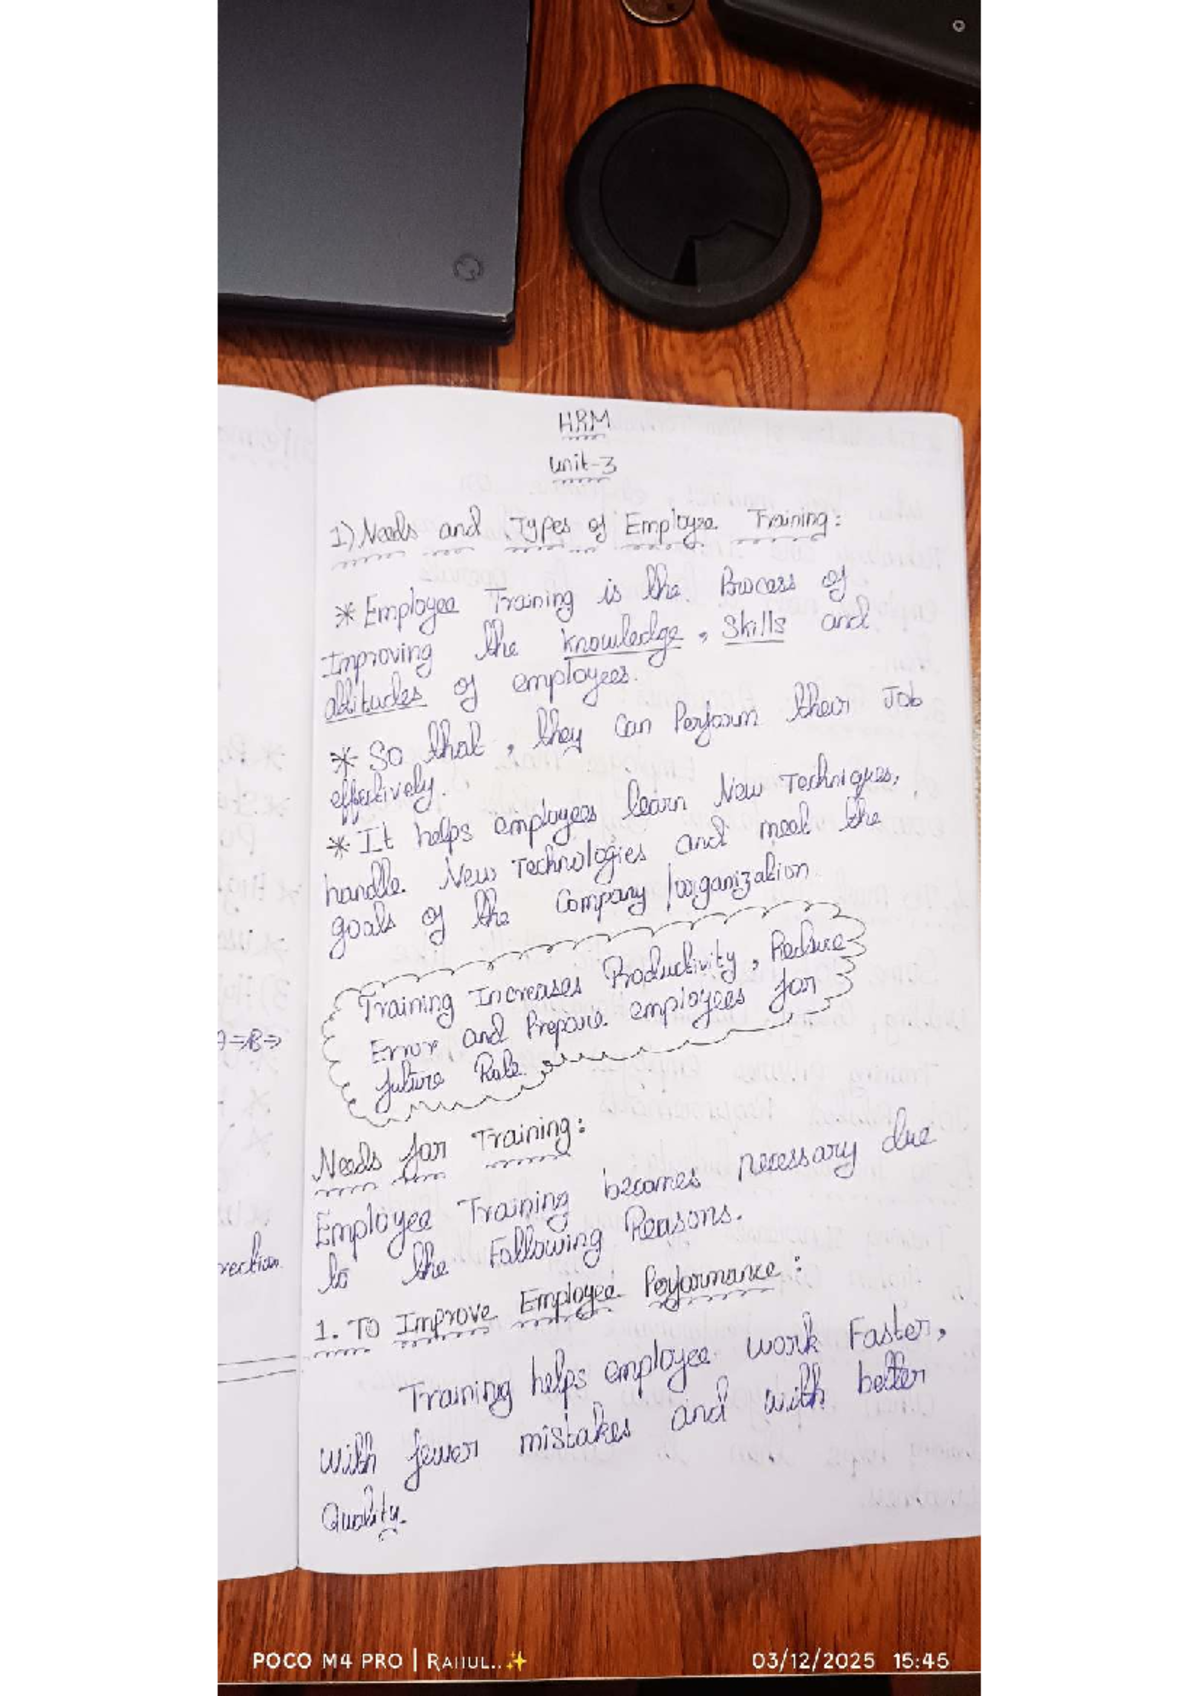 HRM
Unit-3
1) Needs and Types of Employee Training:
* Employee Training is the Process of
Improving the knowledge, Skills and
attitudes of employees.
* So that, they can Perform their Job
effectively.
* It helps employees learn New Techniques,
handle New Technologies and meet the
goals of the Company / organization
Training Increases Productivity, Reduce
Error and Prepare employees for
future Role.
A⇒B⇒
Needs for Training:
Employee Training becomes necessary due
to the Following Reasons.
rection
1. To Improve Employee Performance:
Training helps employee work Faster,
with fewer mistakes and with better
Quality.
POCO M4 PRO | RAHUL..✨
03/12/2025 15:45